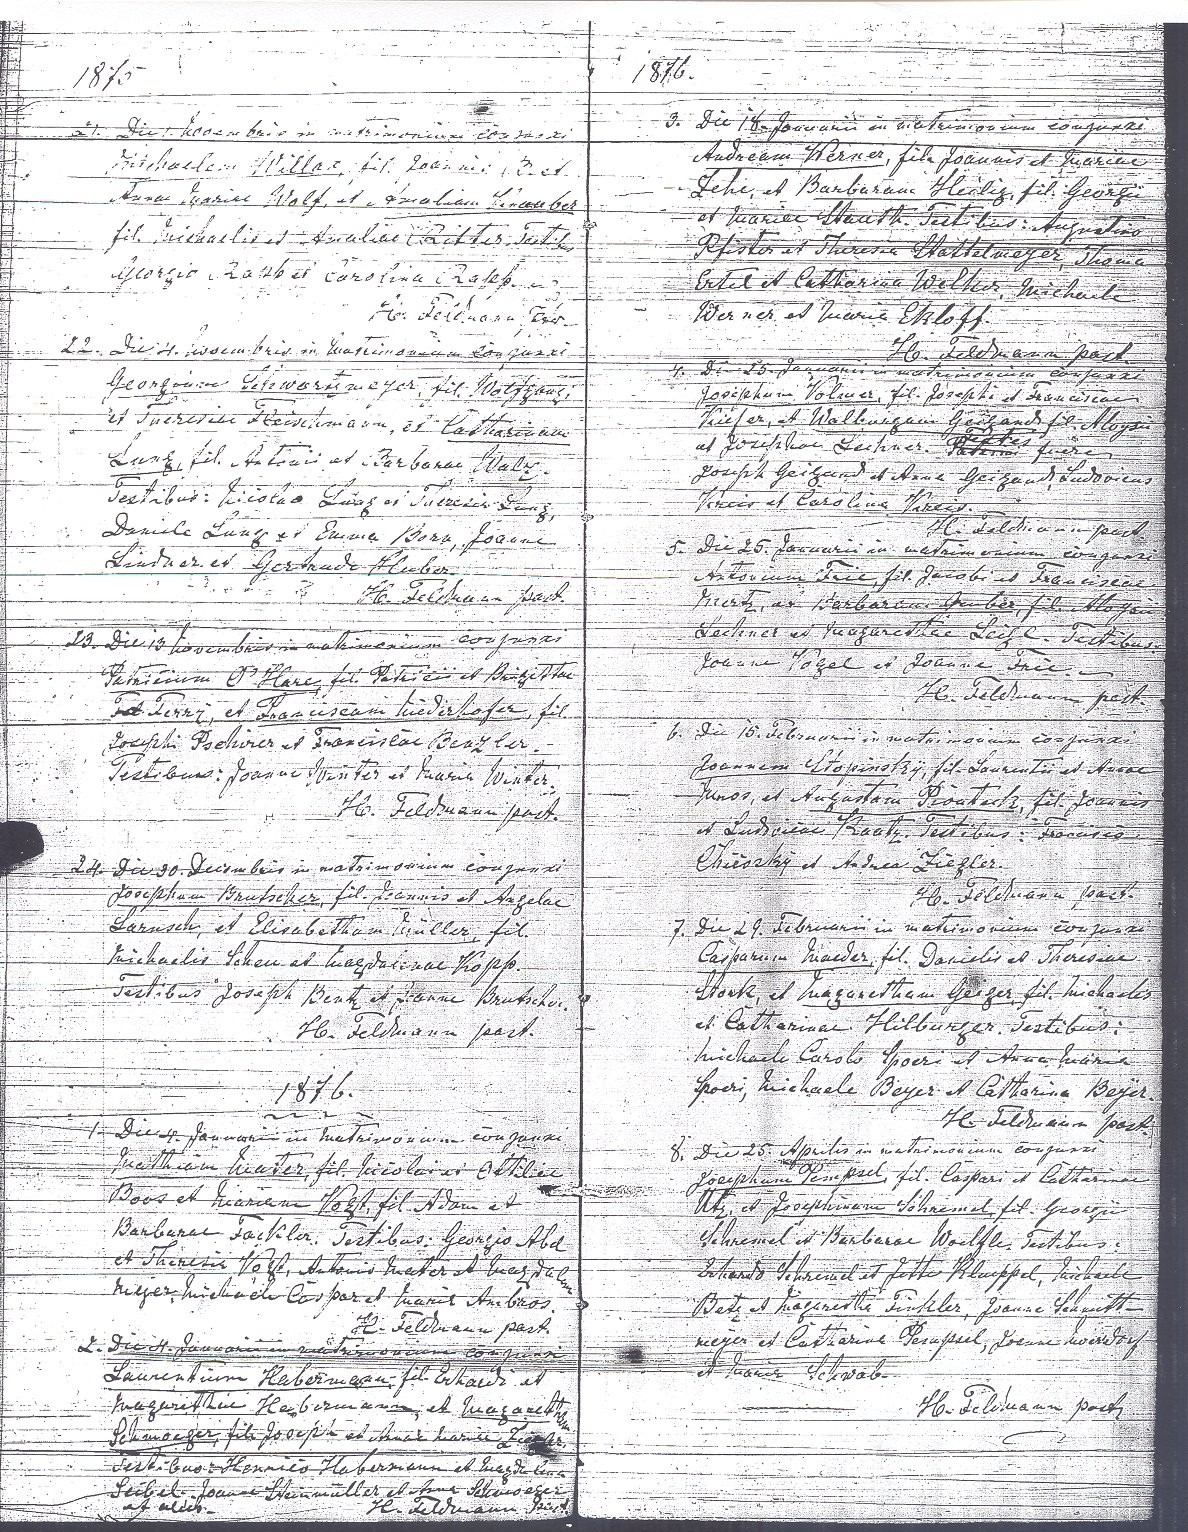 1875
21. Die 1. Novembris in matrimonium conjunxi
Michaelem Willar, fil. Joannis B. et
Annae Mariae Wolf, et Amaliam
fil. Michaelis et Amaliae Ritter. Testibus
Georgio Rapp et Carolina Rapp.
H. Feldmann, Past.
22. Die 4. Novembris in matrimonium conjunxi
Georgium Schwartzmeyer, fil. Wolfgangi
et Theresiae Fleischmann, et Catharinam
Lung, fil. Antonii et Barbarae Walz.
Testibus: Nicolao Lung et Theresia Lung,
Daniele Lung et Emma Born, Joanne
Lindner et Gertrude Huber
H. Feldmann past.
23. Die 13 Novembris in matrimonium conjunxi
Patricium O'Hare, fil. Patricii et Brigittae
Ferry, et Franciscam Niederhofer, fil.
Josephi Pschirer et Franciscae Benzler.-
Testibus: Joanne Winter et Maria Winter.
H. Feldmann past.
24. Die 30. Decembris in matrimonium conjunxi
Josephum Brutscher, fil. Joannis et Angelae
Larnsch, et Elisabetham Müller, fil.
Michaelis Scheu et Magdalenae Kopp.
Testibus Joseph Bentz et Joanne Brutscher.
H. Feldmann past.
1876.
1. Die 4. Januarii in matrimonium conjunxi
Mathiam Mater, fil. Nicolai et Ottiliae
Boos et Mariam Vogt, fil. Adam et
Barbarae Fackler. Testibus: Georgio Abel
et Theresia Vogt, Antonio Mater et Magdalena
Meyer, Michaele Caspar et Maria Ambros.
H. Feldmann past.
2. Die 4. Januarii in matrimonium conjunxi
Laurentium Habermann, fil. Erhardi et
Magarethae Habermann, et Magaretham
Schmoeger, fil. Joseph et Annae Mariae Ziegler,
Testibus: Henrico Habermann et Magdalena
Seibel, Joanne Steinmüller et Anna Schmoeger
et aliis. H. Feldmann Past.
1876.
3. Die 18. Januarii in matrimonium conjunxi
Andream Werner, fil. Joannis et Mariae
Lehe, et Barbaram Heilig, fil. Georgii
et Mariae Stauth. Testibus: Augustino
Pfister et Theresia Stattelmeyer, Thoma
Ertel et Catharina Welker, Michaele
Werner et Maria Ekloff.
H. Feldmann past.
4. Die 25. Januarii in matrimonium conjunxi
Josephum Volmer, fil. Josephi et Franciscae
Kiefer, et Walburgam Geigand, fil. Aloysii
et Josephae Lechner. Testes fuere
Joseph Geigand et Anna Geigand, Ludovicus
Kreis et Carolina Kreis.
H. Feldmann past.
5. Die 25. Januarii in matrimonium conjunxi
Antonium Frie, fil. Jacobi et Franciscae
Mertz, et Barbaram Gruber, fil. Aloysii
Lechner et Magarethae Leigl. Testibus:
Joanne Vogel et Joanne Frie.
H. Feldmann past.
6. Die 15. Februarii in matrimonium conjunxi
Joannem Stopinsky, fil. Laurentii et Annae
Kunos, et Augustam Pionteck, fil. Joannis
et Ludovicae Kaatz. Testibus: Francisco
Chieszky et Andrea Ziegler.
H. Feldmann, past.
7. Die 29. Februarii in matrimonium conjunxi
Casparum Maeder, fil. Danielis et Theresiae
Stork, et Magaretham Geiger, fil. Michaelis
et Catharinae Hilburger. Testibus:
Michaele Carolo Spoeri et Anna Maria
Spoeri, Michaele Beyer et Catharina Beyer.
H. Feldmann past.
8. Die 25. Aprilis in matrimonium conjunxi
Josephum Pempsel, fil. Caspari et Catharinae
Utz, et Josephinam Schremel, fil. Georgii
Schremel et Barbarae Woelfle. Testibus:
Erhardo Schremel et Jette Klueppel, Michaele
Betz et Magaretha Finkler, Joanne Schmitt-
meyer et Catharina Pempsel, Joanne Moersdorf
et Maria Schwab.
H. Feldmann past.